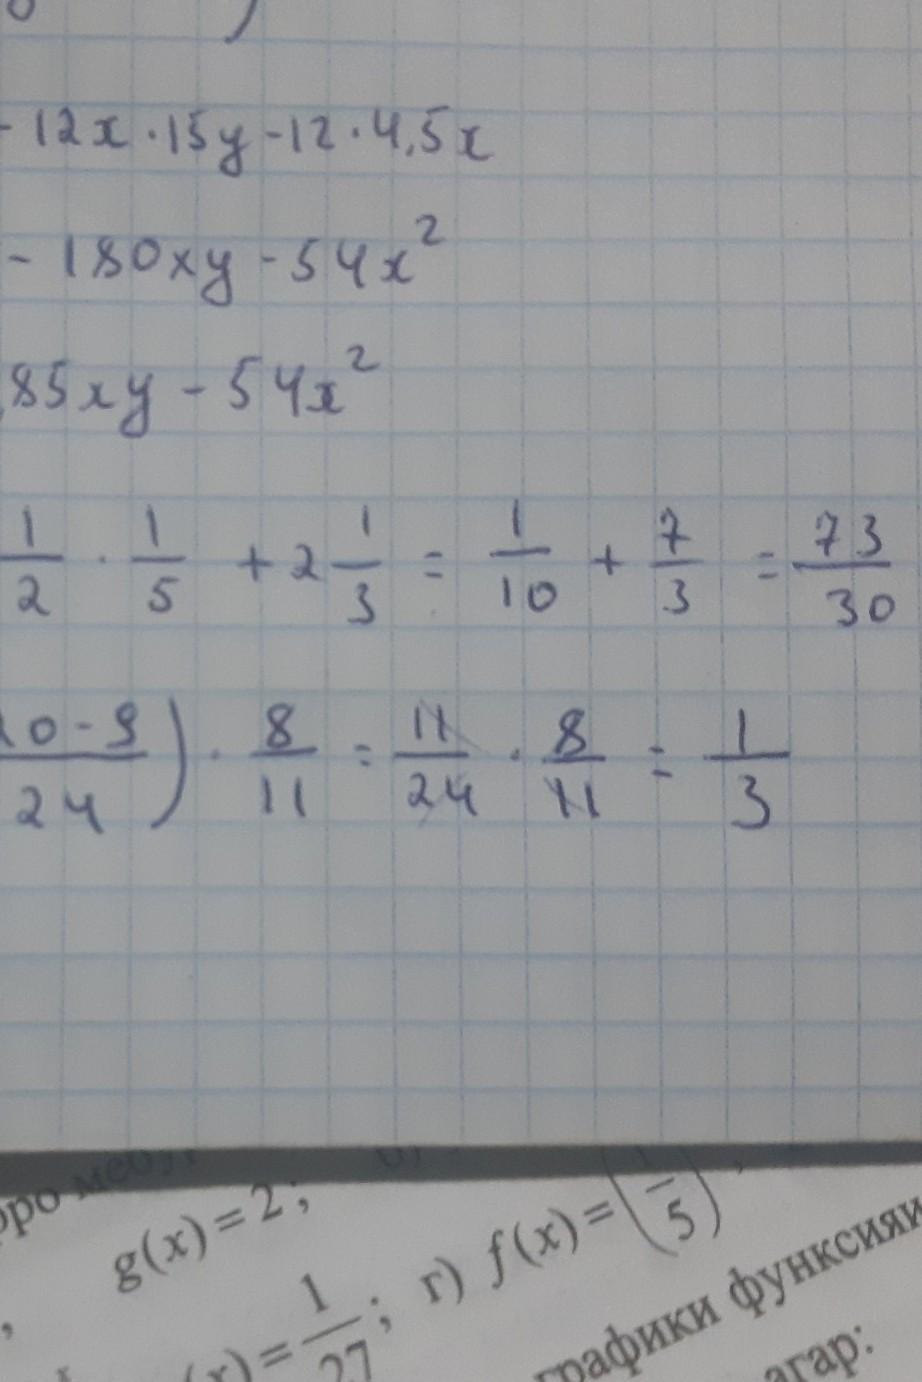 - 12x · 15y - 12 · 4,5x
- 180xy - 54x²
85xy - 54x²
1/2 · 1/5 + 2 1/3 = 1/10 + 7/3 = 73/30
(0 - 9)/24) · 8/11 = 11/24 · 8/11 = 1/3
g(x) = 2;
г) f(x) = (1/5)
(x) = 1/27;
графики функсияи
агар: